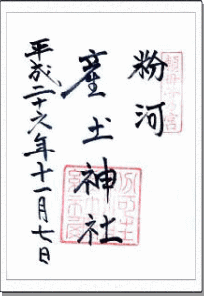 粉河
産土神社
平成二十六年十一月七日